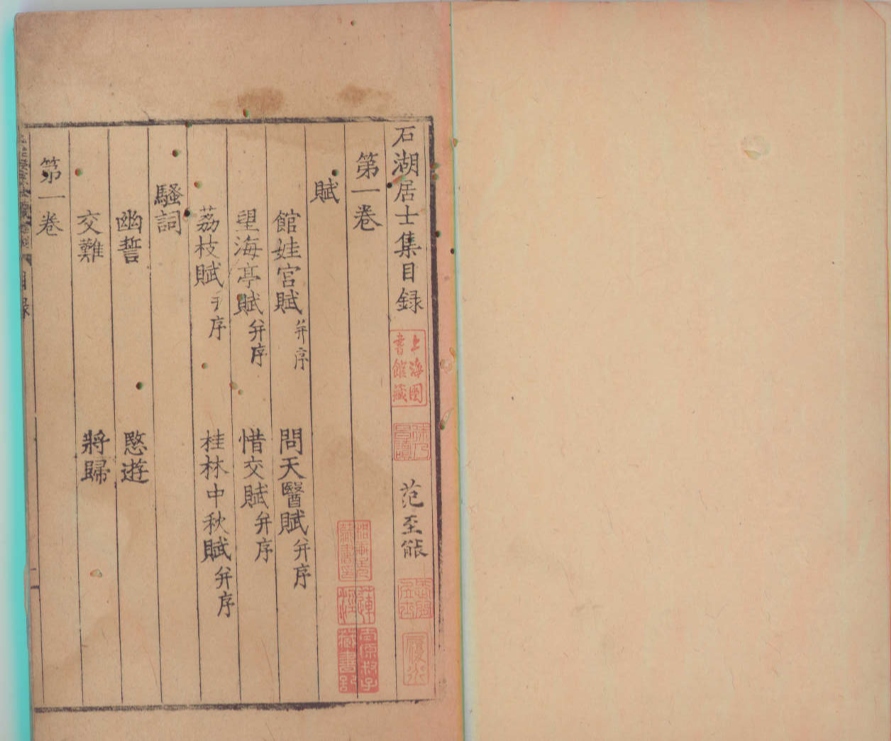 石湖居士集目録 范至能
上海圖書館藏
第一卷
賦
館娃宮賦并序 問天醫賦并序
望海亭賦并序 惜交賦并序
荔枝賦并序 桂林中秋賦并序
騷詞
幽誓 愍遊
交難 將歸
第一卷
目錄